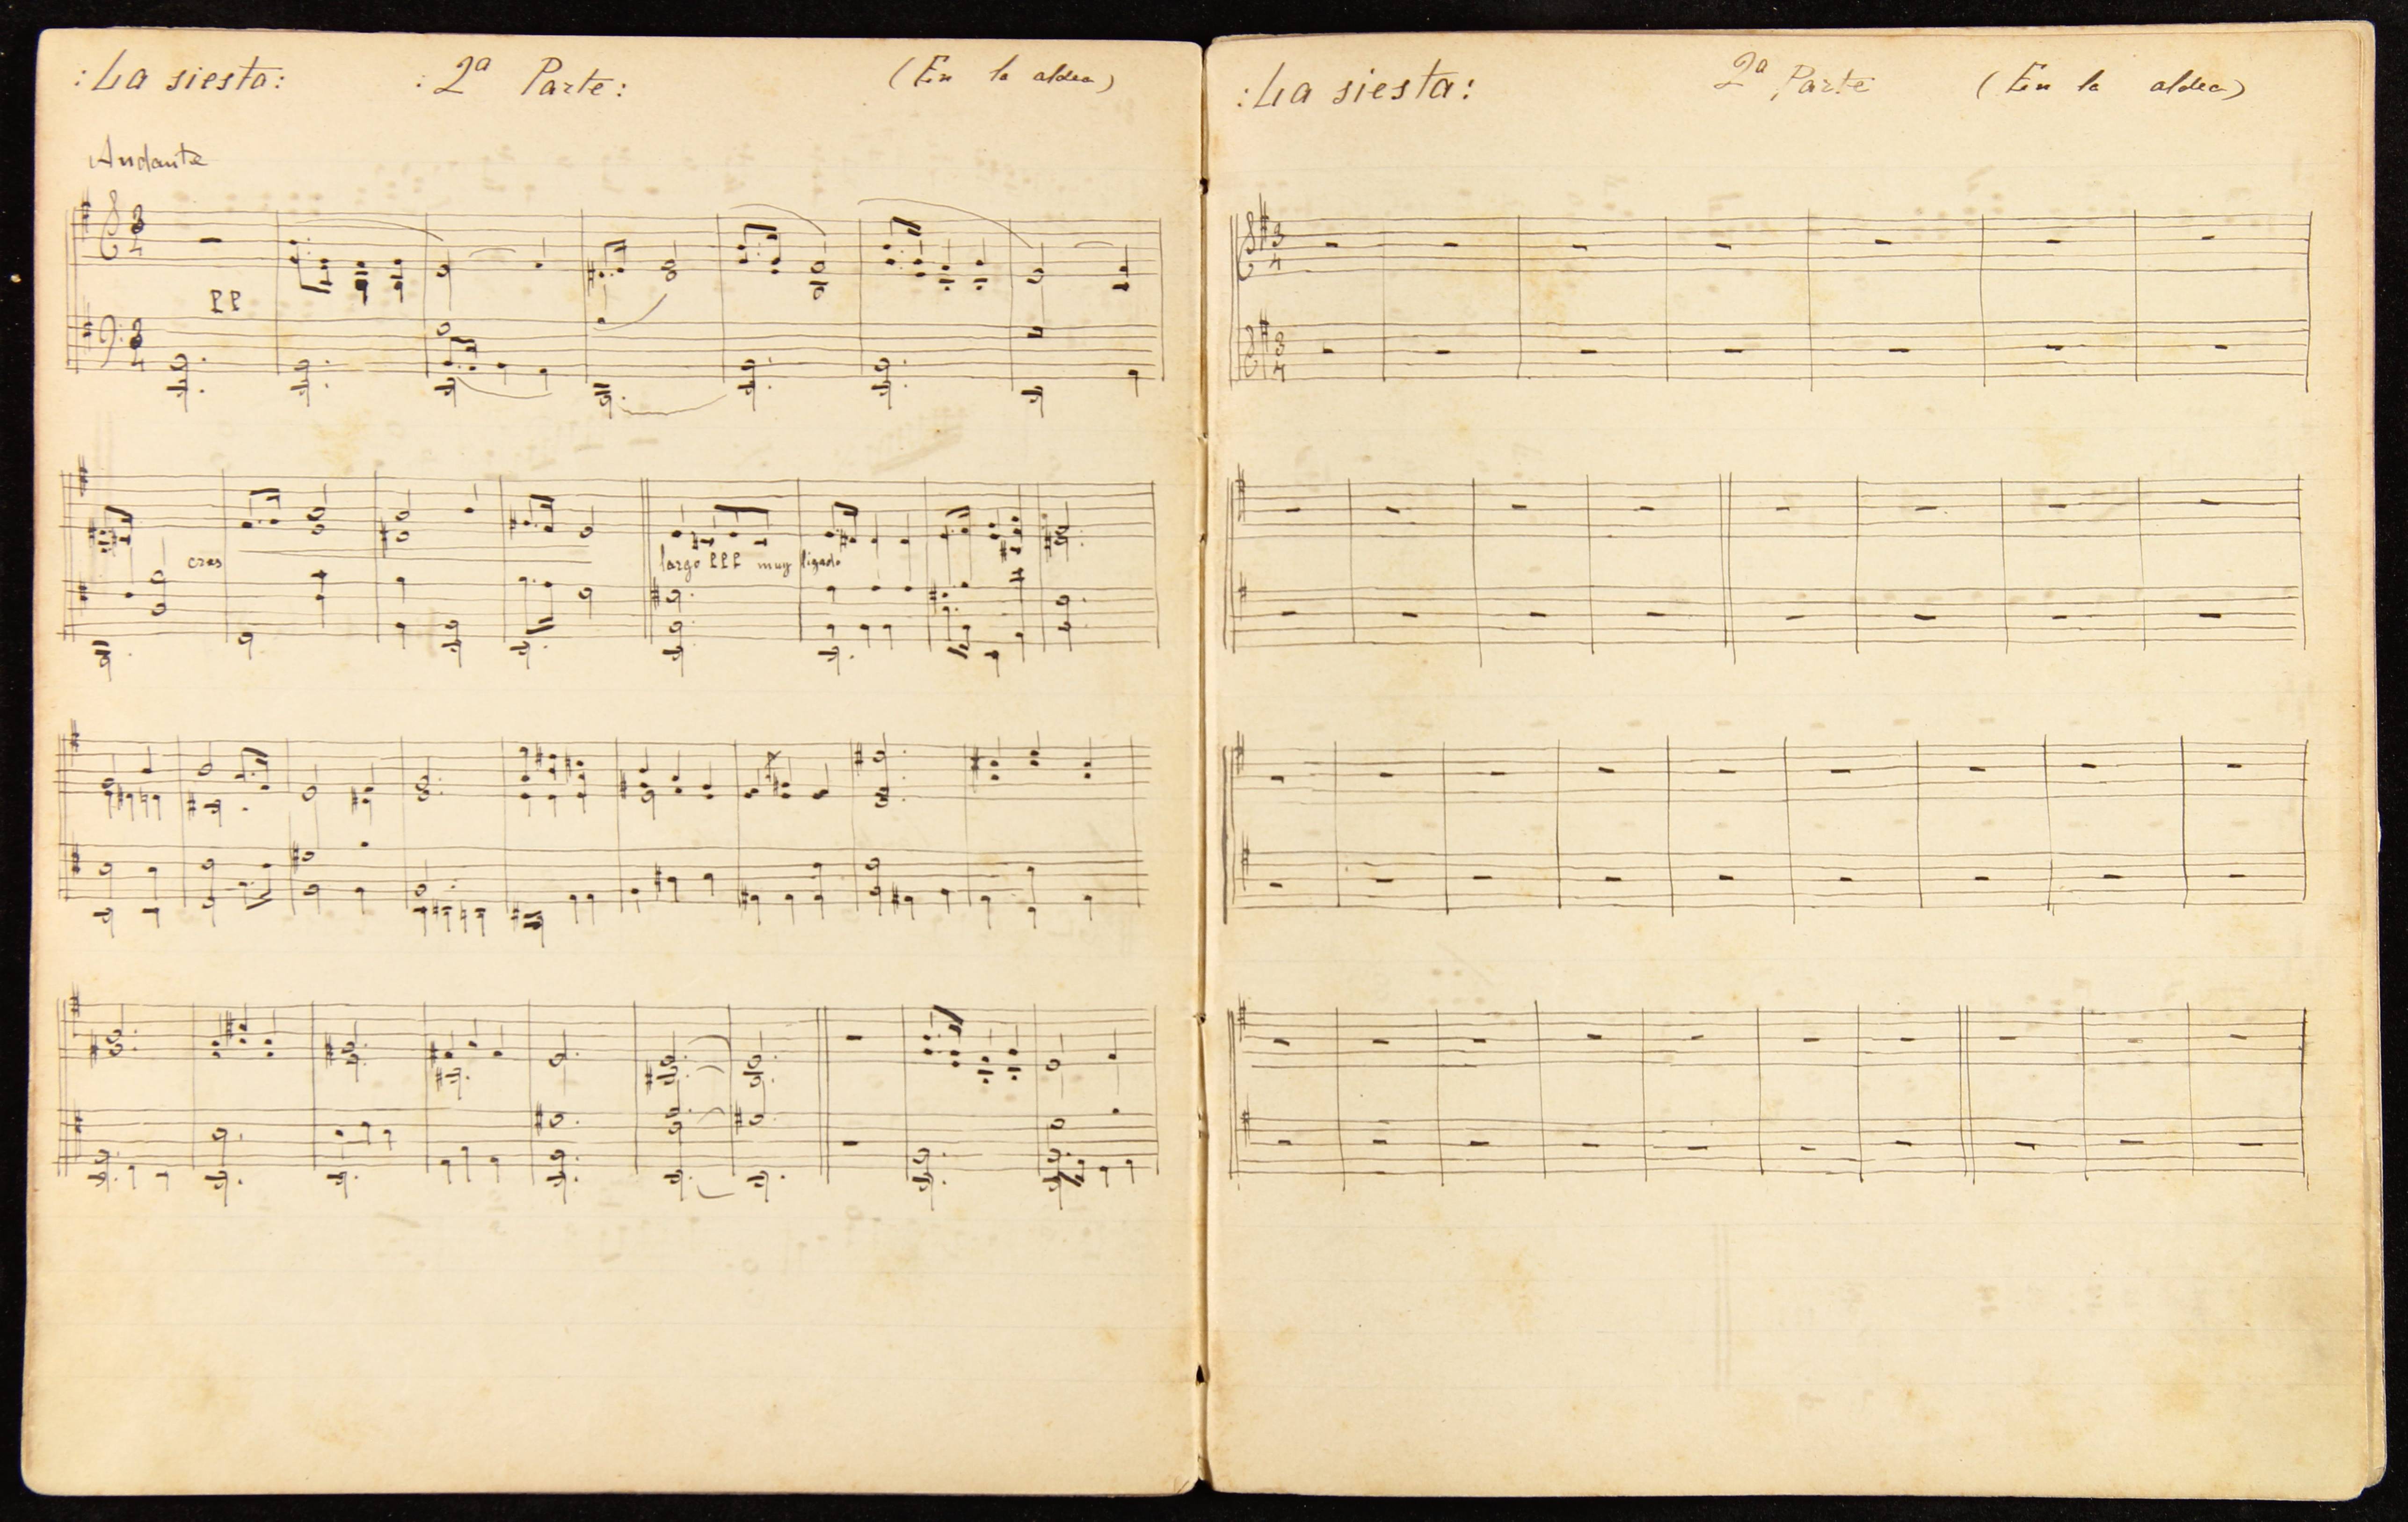 : La siesta: : 2ª Parte: (En la aldea)
Andante
3
4
PP
3
4
cres
largo PPP muy ligado
: La siesta: 2ª Parte (En la aldea)
3
4
3
4